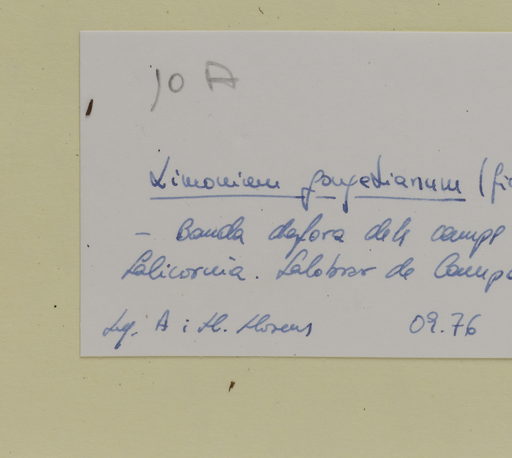 10 A
Limonium gougetianum (fi
- Banda dafora dels camps
Salicornia. Salobrar de Camp
Leg. A i Ll. Llorens 09.76